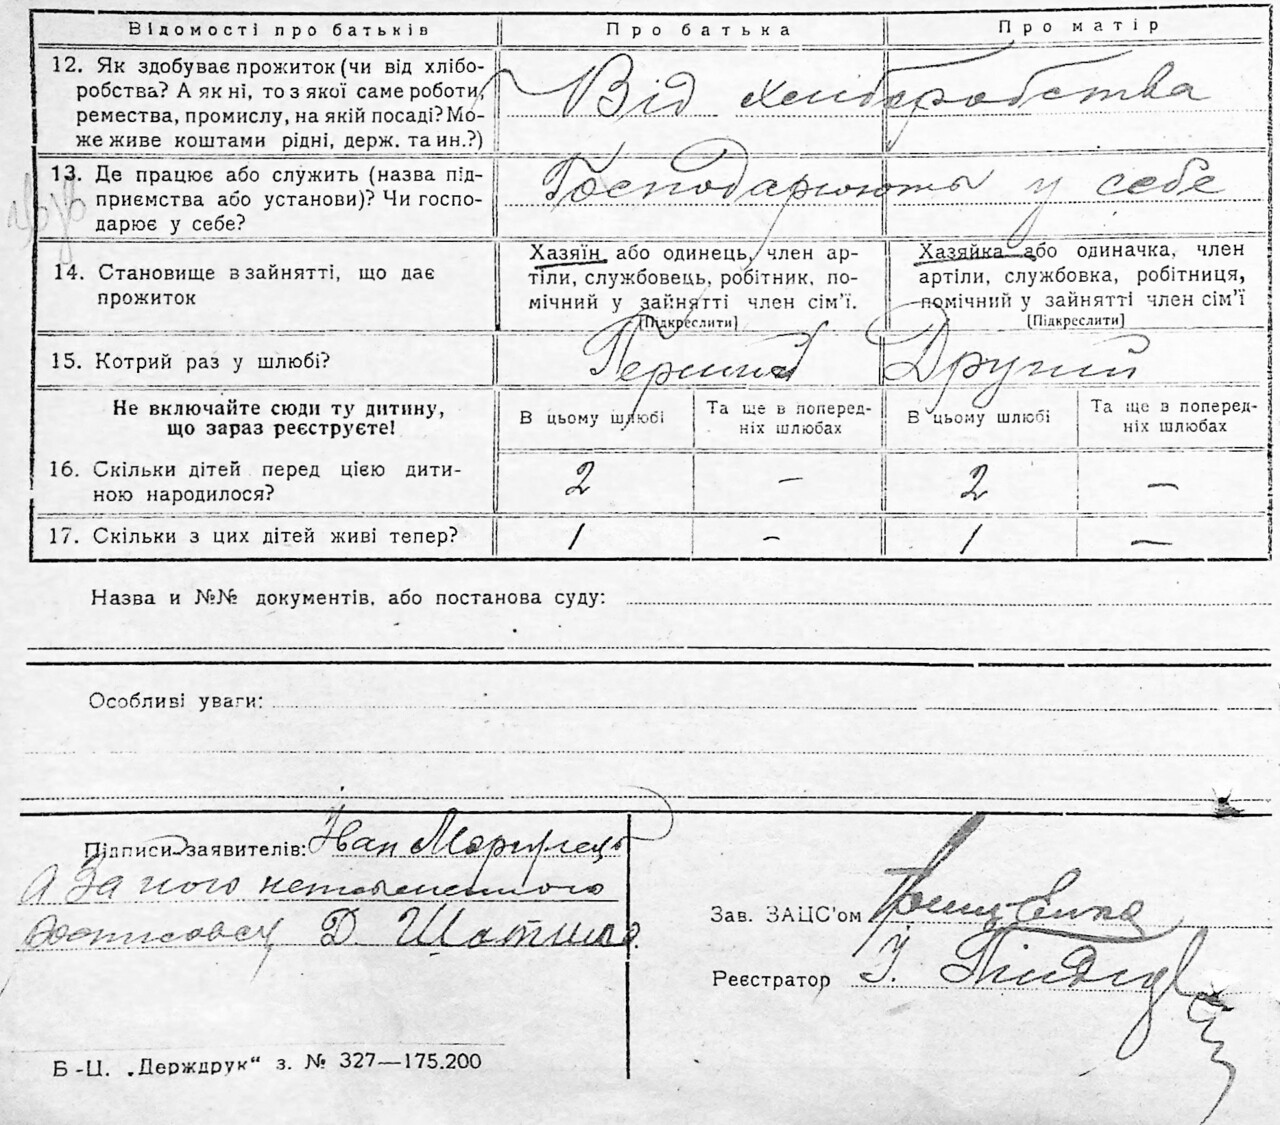 Відомості про батьків Про батька Про матір
12. Як здобуває прожиток (чи від хлібо-
робства? А як ні, то з якої саме роботи,
ремества, промислу, на якій посаді? Мо-
же живе коштами рідні, держ. та ин.?)
Від хліборобства
13. Де працює або служить (назва під-
приємства або установи)? Чи госпо-
дарює у себе?
Господарюють у себе
14. Становище в зайнятті, що дає
прожиток
Хазяїн або одинець, член ар-
тіли, службовець, робітник, по-
мічний у зайнятті член сім’ї.
[Підкреслити]
Хазяйка або одиначка, член
артіли, службовка, робітниця,
помічний у зайнятті член сім’ї
[Підкреслити]
15. Котрий раз у шлюбі? Перший Другий
Не включайте сюди ту дитину,
що зараз реєструєте!
В цьому шлюбі
Та ще в поперед-
ніх шлюбах
В цьому шлюбі
Та ще в поперед-
ніх шлюбах
16. Скільки дітей перед цією дити-
ною народилося?
2 – 2 –
17. Скільки з цих дітей живі тепер? 1 – 1 –
Назва и №№ документів, або постанова суду:
Особливі уваги:
Підписи заявителів: Іван
А за його неписьменного
Д.
Зав. ЗАЦС'ом
Реєстратор І.
Б-Ц. „Держдрук“ з. № 327—175.200